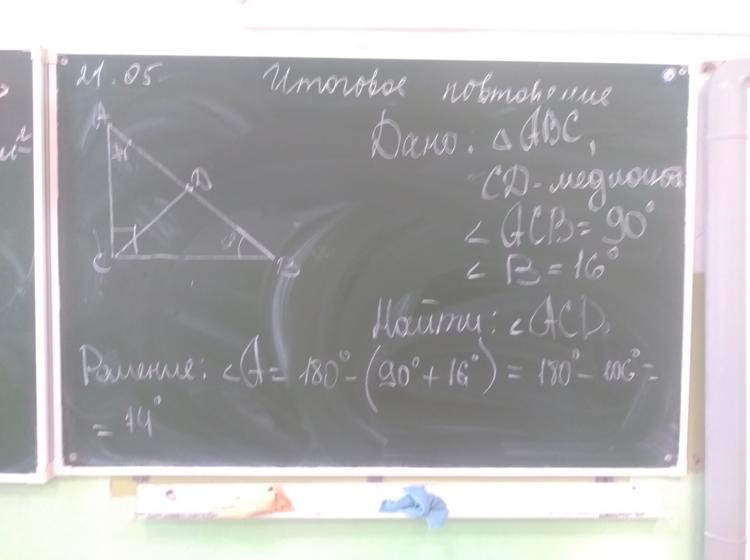 21.05
Итоговое повторение
A
Дано: △ABC,
D
CD-медиана
∠ACB=90°
C
B
∠B=16°
Найти: ∠ACD.
Решение: ∠A=180°-(90°+16°)=180°-106°=
=74°